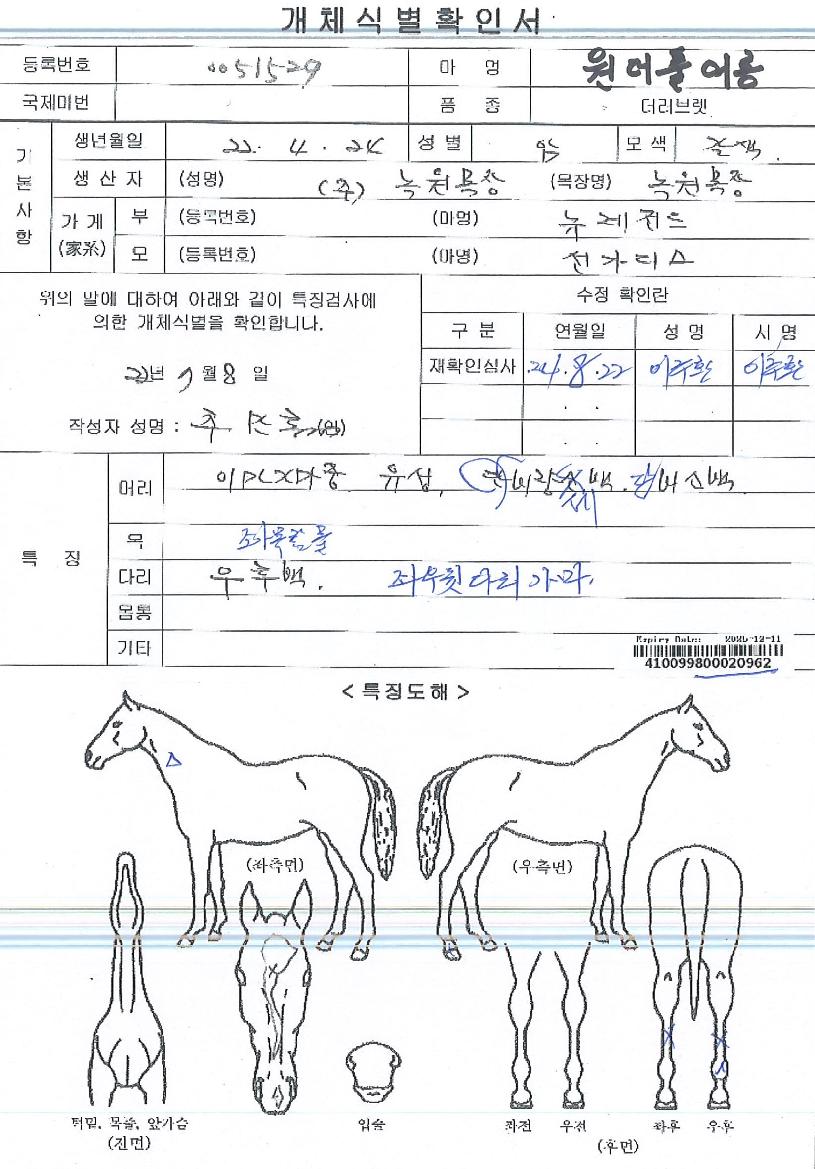 개체식별확인서
등록번호 0051529 마 명 원더풀여름
국제마번 품 종 더러브렛
기본사항
생년월일 22. 4. 24 성별 암 모색 갈색.
생산자 (성명) (주) 녹원목장 (목장명) 녹원목장
가계 (家系) 부 (등록번호) (마명) 뉴레전드
모 (등록번호) (마명)
위의 말에 대하여 아래와 같이 특징검사에
의한 개체식별을 확인합니다.
년 월 8 일
작성자 성명 : (인)
수정 확인란
구 분 연월일 성 명 서 명
재확인심사 .24.8.22 이주환 이주환
특 징
머리 유성,
목 좌목찰물
다리 우후백. 좌우뒷다리 가마.
몸통
기타
Expiry Date: 2025-12-11
410099800020962
< 특징도해 >
(좌측면) (우측면)
턱밑, 목줄, 앞가슴 입술 좌전 우전 좌후 우후
(전면) (후면)